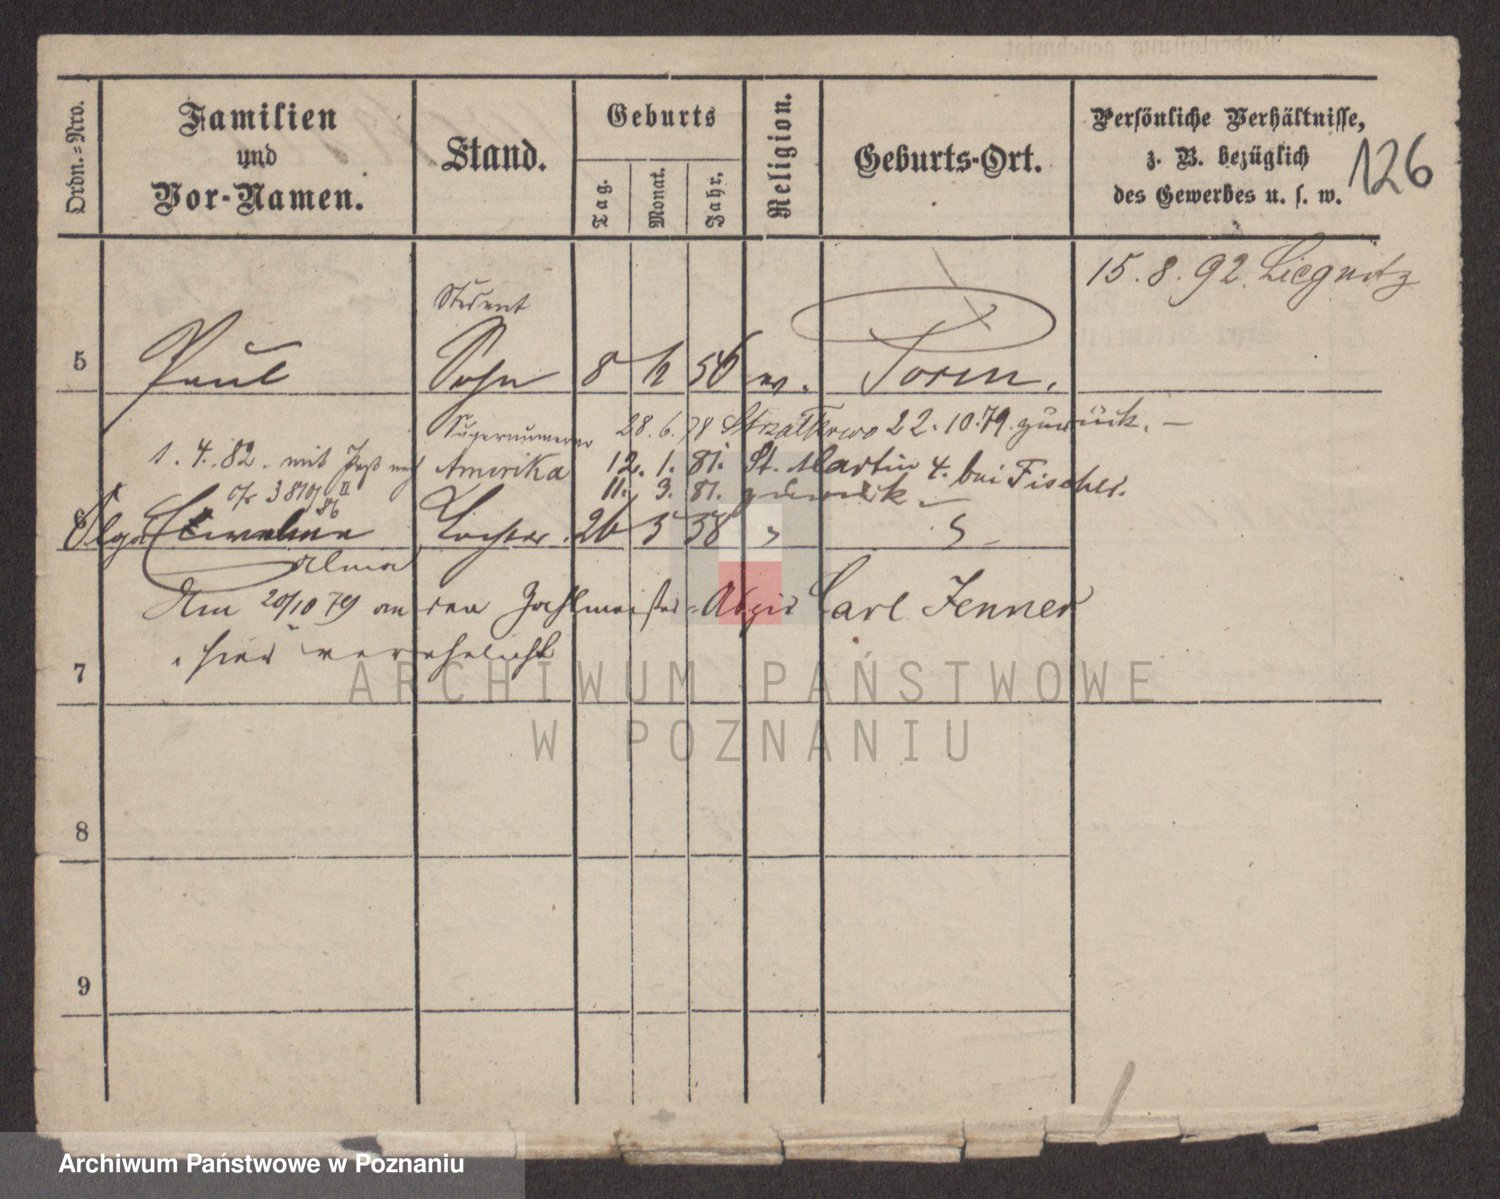 Ordn.-Nro.
Familien
und
Vor-Namen.
Stand.
Geburts
Tag.
Monat.
Jahr.
Religion.
Geburts-Ort.
Persönliche Verhältnisse,
z. B. bezüglich
des Gewerbes u. s. w.
126
15. 8. 92. Liegnitz
Student
5 Paul Sohn 8 56 ev. Posen.
Supernumerar 28. 6. 78 Strzalkowo 22. 10. 79. zurück. —
1. 4. 82. mit Paß nach Amerika 12. 1. 81. St. Martin 4. bei Fischer.
11. 3. 81. zurück —
6 Olga Tochter. 26 5 58 " "
Alma
Am 20/10 79 an den Zahlmeister- Carl Jenner
hier verehelicht
7
8
9
ARCHIWUM PAŃSTWOWE
W POZNANIU
Archiwum Państwowe w Poznaniu